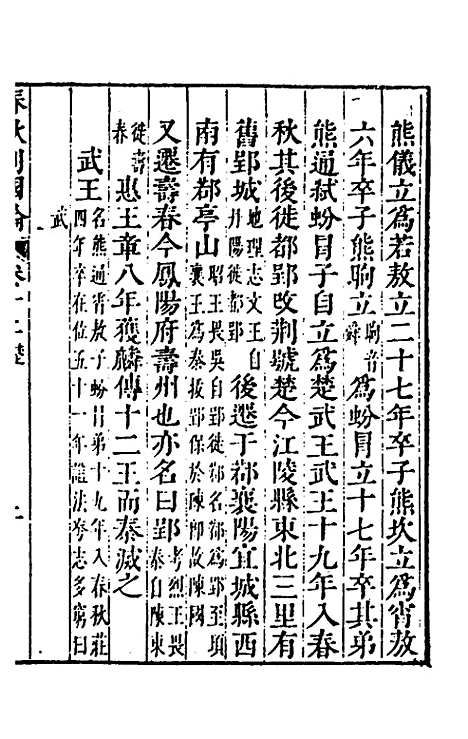 熊儀立爲若敖立二十七年卒子熊坎立爲宵敖
六年卒子熊眴立眴音舜爲蚡冒立十七年卒其弟
熊通弑蚡冒子自立爲楚武王武王十九年入春
秋其後徙都郢改荆號楚今江陵縣東北三里有
舊郢城地理志文王自丹陽徙都郢後遷于鄀襄陽宜城縣西
南有鄀亭山昭王畏吳自郢徙鄀名鄀爲郢至頃襄王爲秦拔郢保於陳卽故陳國
又遷壽春今鳳陽府壽州也亦名曰郢考烈王畏秦自陳東
徙壽春惠王章八年獲麟傳十二王而秦滅之
武王名熊通宵敖子蚡冒弟十九年入春秋莊四年卒在位五十一年諡法夸志多窮曰
武
春秋列國論 卷十二 楚 上